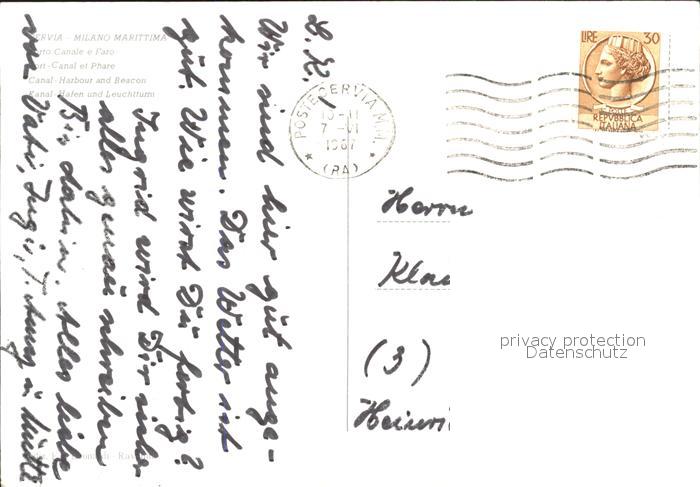 CERVIA - MILANO MARITTIMA
Porto Canale e Faro
Port-Canal et Phare
Canal-Harbour and Beacon
Kanal-Hafen und Leuchtturm
L. K.!
Wir sind hier gut ange-
kommen. Das Wetter ist
gut. Wie wirst Du fertig?
Ingrid wird Dir sicher
alles genau schreiben
Bis dahin. Alles liebe
von Vati, Ingi, T. Anny u. Mutti
POSTE CERVIA M.M.
10-11
7-VI
1967
(RA)
LIRE 30
POSTE
REPVBBLICA
ITALIANA
Herrn
Klau
(3)
Heinri
privacy protection
Datenschutz